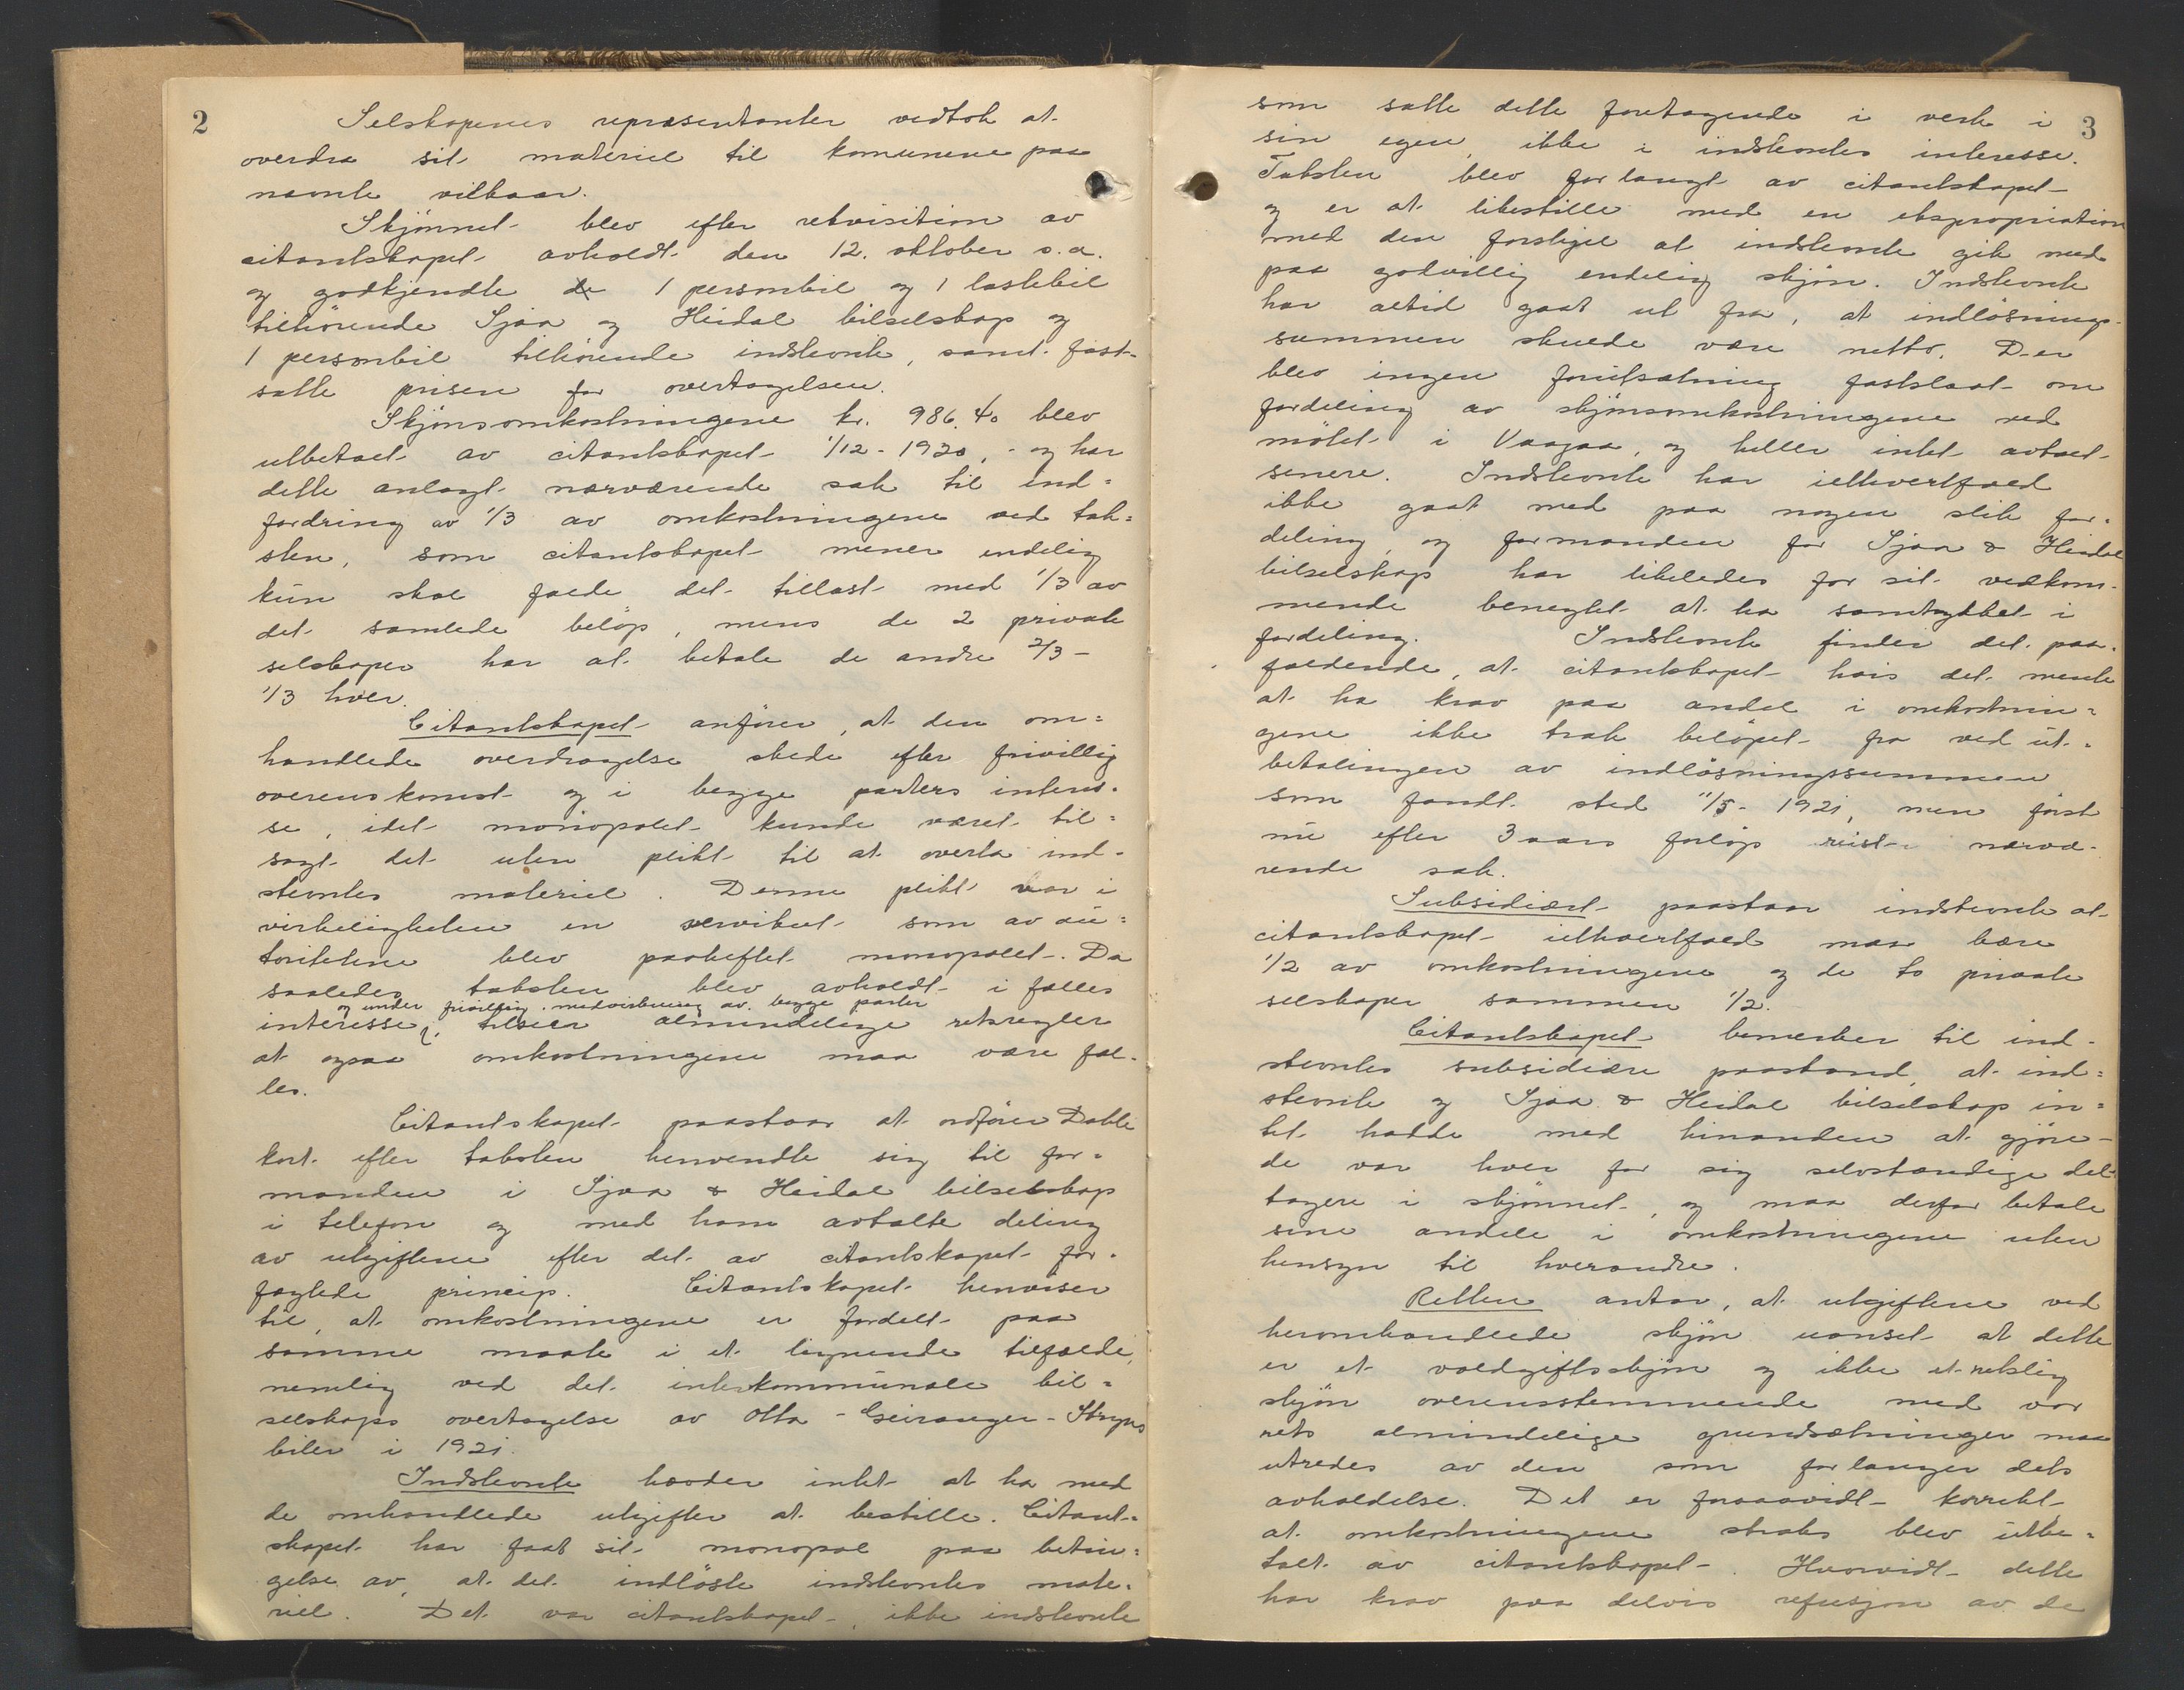 2
Selskapenes repræsentanter vedtok at
overdra sit materiel til komunene paa
nævnte vilkaar.
Skjönnet blev efter rekvisition av
citantskapet avholdt den 12. oktober s.a.
og godkjendte 1 personbil og 1 lastebil
tilhörende Sjoa og Heidal bilselskap og
1 personbil tilhörende indstevnte, samt fast-
satte prisen for overtagelsen.
Skjönsomkostningene kr. 986.40 blev
utbetalt av citantskapet 1/12 - 1920, - og har
dette anlagt nærværende sak til ind=
fordring av 1/3 av omkostningene ved tak=
sten, som citantskapet mener endelig
kun skal falde det tillast med 1/3 av
det samlede belöp, mens de 2 private
selskaper har at betale de andre 2/3 -
1/3 hver.
Citantskapet anförer, at den om=
handlede overdragelse skede efter frivillig
overenskomst og i begge parters interes-
se, idet monopolet kunde været til=
sagt det uten plikt til at overta ind-
stevntes materiel. Denne plikt var i
virkeligheten en servitut som av au=
toritetene blev paaheftet monopolet. Da
saaledes taksten blev avholdt i fælles
og under frivillig medvirkning av begge parter
interesse, tilsier almindelige retsregler
at ogsaa omkostningene maa være fæl-
les.
Citantskapet paastaar at ordförer Dahle
kort efter taksten henvendte sig til for-
manden i Sjoa & Heidal bilselskap
i telefon og med ham avtalte deling
av utgiftene efter det av citantskapet for-
fægtede princip. Citantskapet henviser
til, at omkostningene er fordelt paa
samme maate i et lignende tilfælde,
nemlig ved det interkommunale bil=
selskaps overtagelse av Otta - Geiranger - Stryns
biler i 1921.
Indstevnte hævder intet at ha med
de omhandlede utgifter at bestille. Citant=
skapet har faat sit monopol paa betin=
gelse av, at det indlöste indstevntes mate-
riel. Det var citantskapet, ikke indstevnte
3
som satte dette foretagende i verk i
sin egen, ikke i indstevntes interesse.
Taksten blev forlangt av citantskapet
og er at likestille med en ekspropriation
med den forskjel at indstevnte gik med
paa godvillig endelig skjön. Indstevnte
har altid gaat ut fra, at indlösnings-
summen skulde være netto. Der
blev ingen forutsætning fastslaat om
fordeling av skjönsomkostningene ved
mötet i Vaagaa, og heller intet avtalt
senere. Indstevnte har ialhvertfald
ikke gaat med paa nogen slik for-
deling, og formanden for Sjoa & Heidal
bilselskap har likeledes for sit vedkom-
mende benegtet at ha samtykket i
fordeling. Indstevnte finder det paa-
faldende, at citantskapet hvis det mente
at ha krav paa andel i omkostnin=
gene ikke trak belöpet fra ved ut-
betalingen av indlösningssummen
som fandt sted 11/5 - 1921, men först
nu efter 3 aars forlöp reist nærvæ-
rende sak.
Subsidiært paastaar indstevnte at
citantskapet ialhvertfald maa bære
1/2 av omkostningene og de to private
selskaper sammen 1/2.
Citantskapet bemerker til ind-
stevntes subsidiære paastand, at ind=
stevnte og Sjoa & Heidal bilselskap in=
tet hadde med hinanden at gjöre -
de var hver for sig selvstændige del-
tagere i skjönnet, og maa derfor betale
sine andele i omkostningene uten
hensyn til hverandre.
Retten antar, at utgiftene ved
heromhandlede skjön uanset at dette
er et voldgiftsskjön og ikke et retslig
skjön overensstemmende med vor
rets almindelige grundsætninger maa
utredes av den som forlanger dets
avholdelse. Det er forsaavidt korrekt
at omkostningene straks blev utbe=
talt av citantskapet. Hvorvidt dette
har krav paa delvis refusjon av de